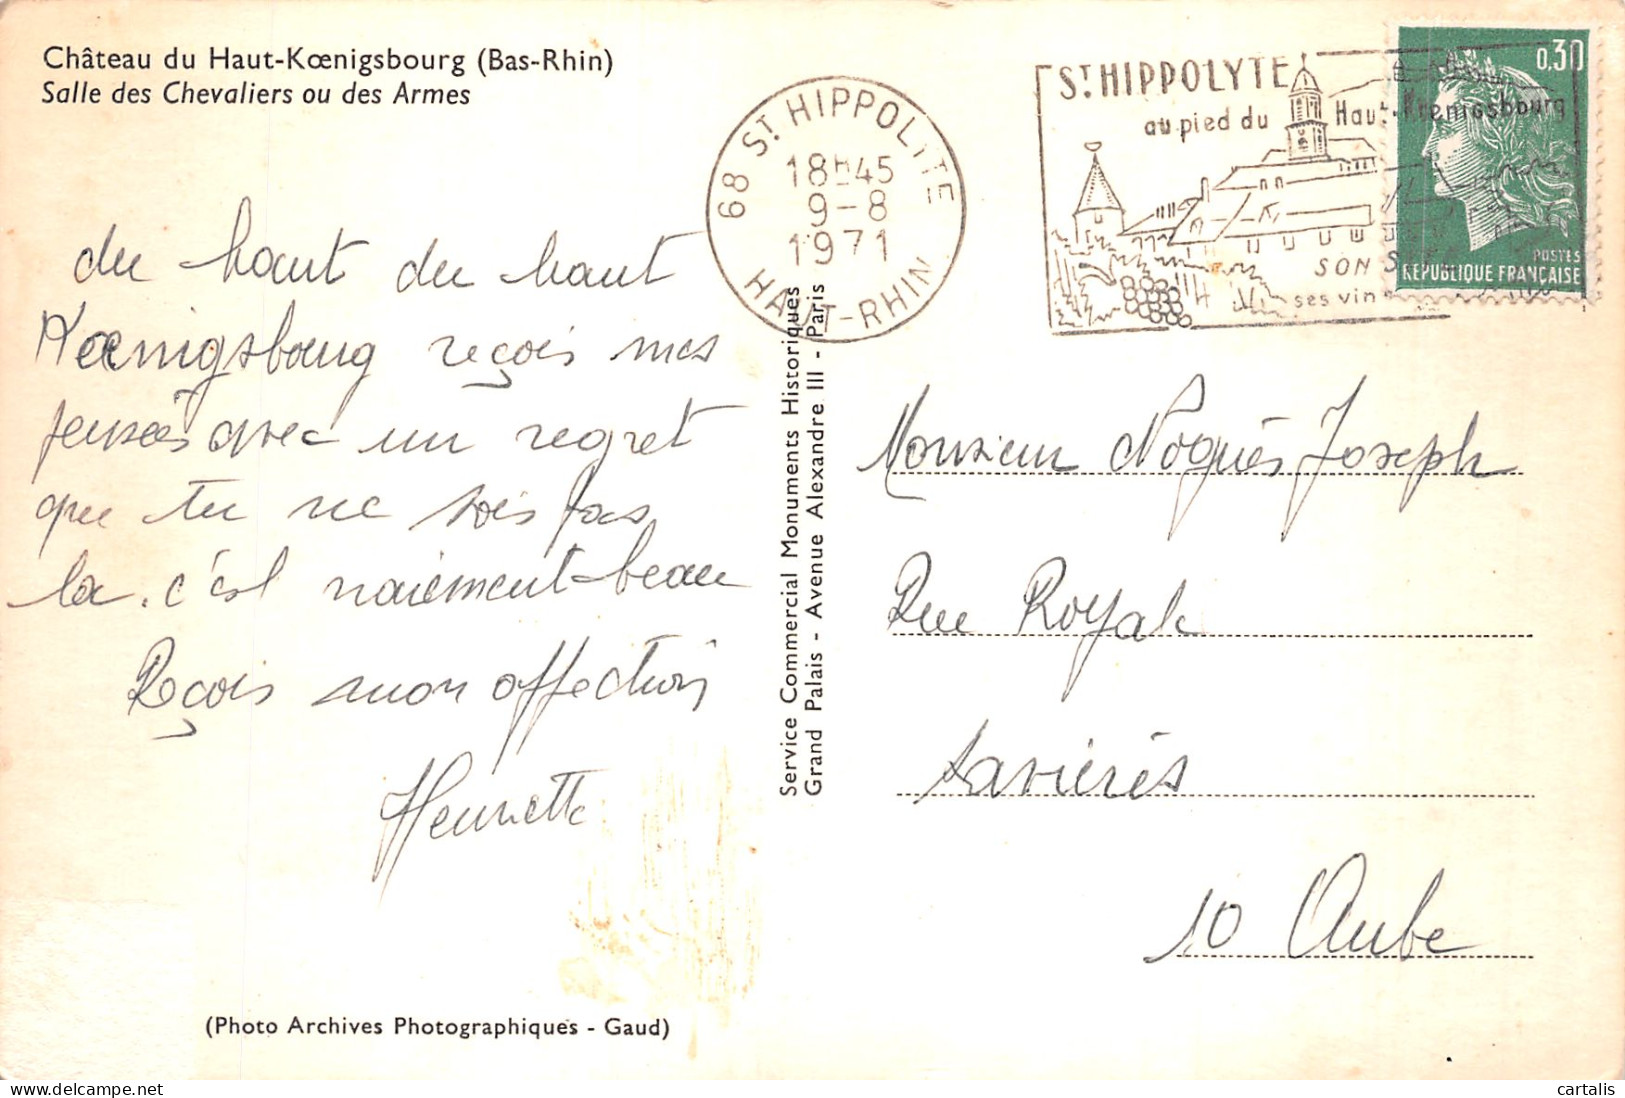 Château du Haut-Kœnigsbourg (Bas-Rhin)
Salle des Chevaliers ou des Armes
68 ST HIPPOLYTE
18H45
9-8
1971
HAUT-RHIN
ST HIPPOLYTE
au pied du Haut-Kœnigsbourg
SON
ses vin
0,30
POSTES
REPUBLIQUE FRANÇAISE
du haut du haut
Kœnigsbourg reçois mes
pensées avec un regret
que tu ne sois pas
la. c'est vraiement beau
Reçois mon affection
Henriette
Service Commercial Monuments Historiques
Grand Palais - Avenue Alexandre III - Paris
Monsieur Noguès Joseph
Rue Royale
Savières
10 Aube
(Photo Archives Photographiques - Gaud)
cartalis